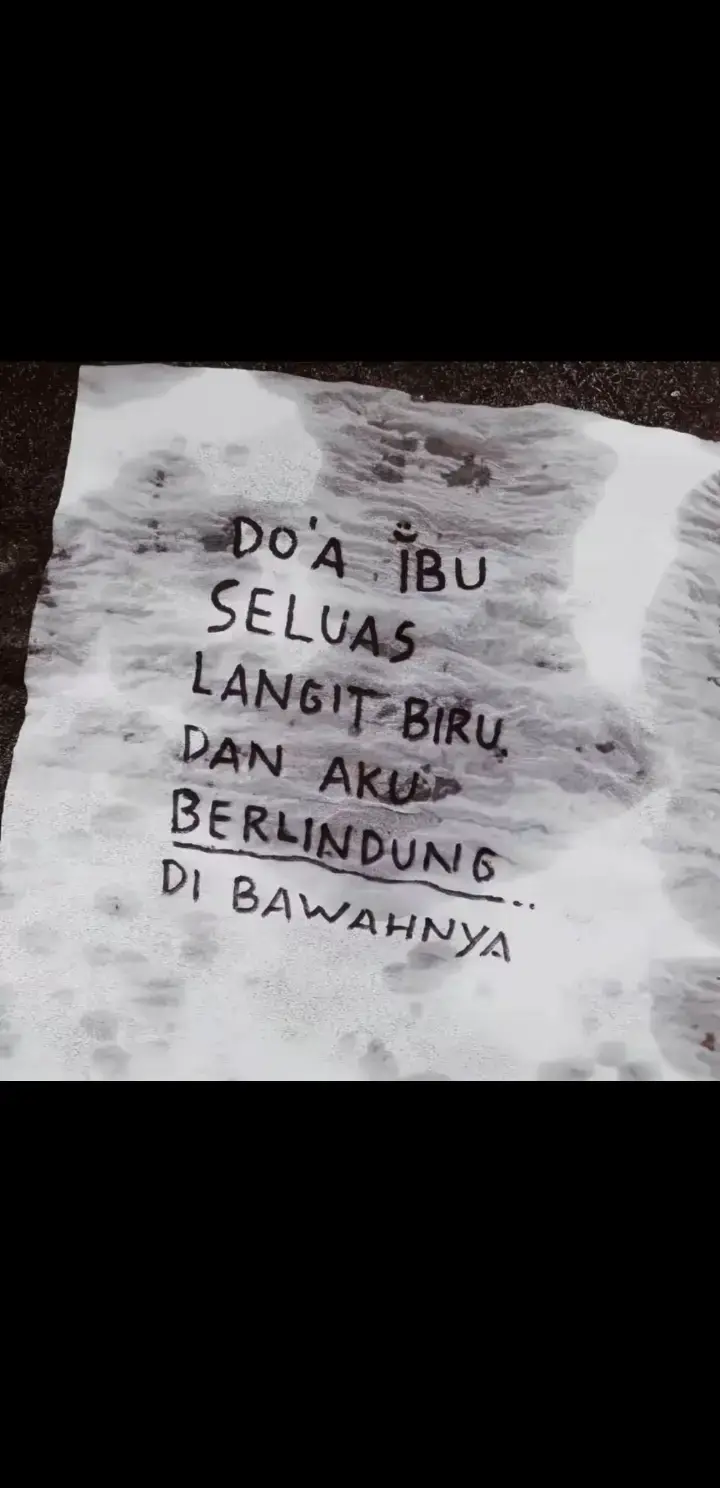 DO'A IBU
SELUAS
LANGIT BIRU
DAN AKU
BERLINDUNG..
DI BAWAHNYA